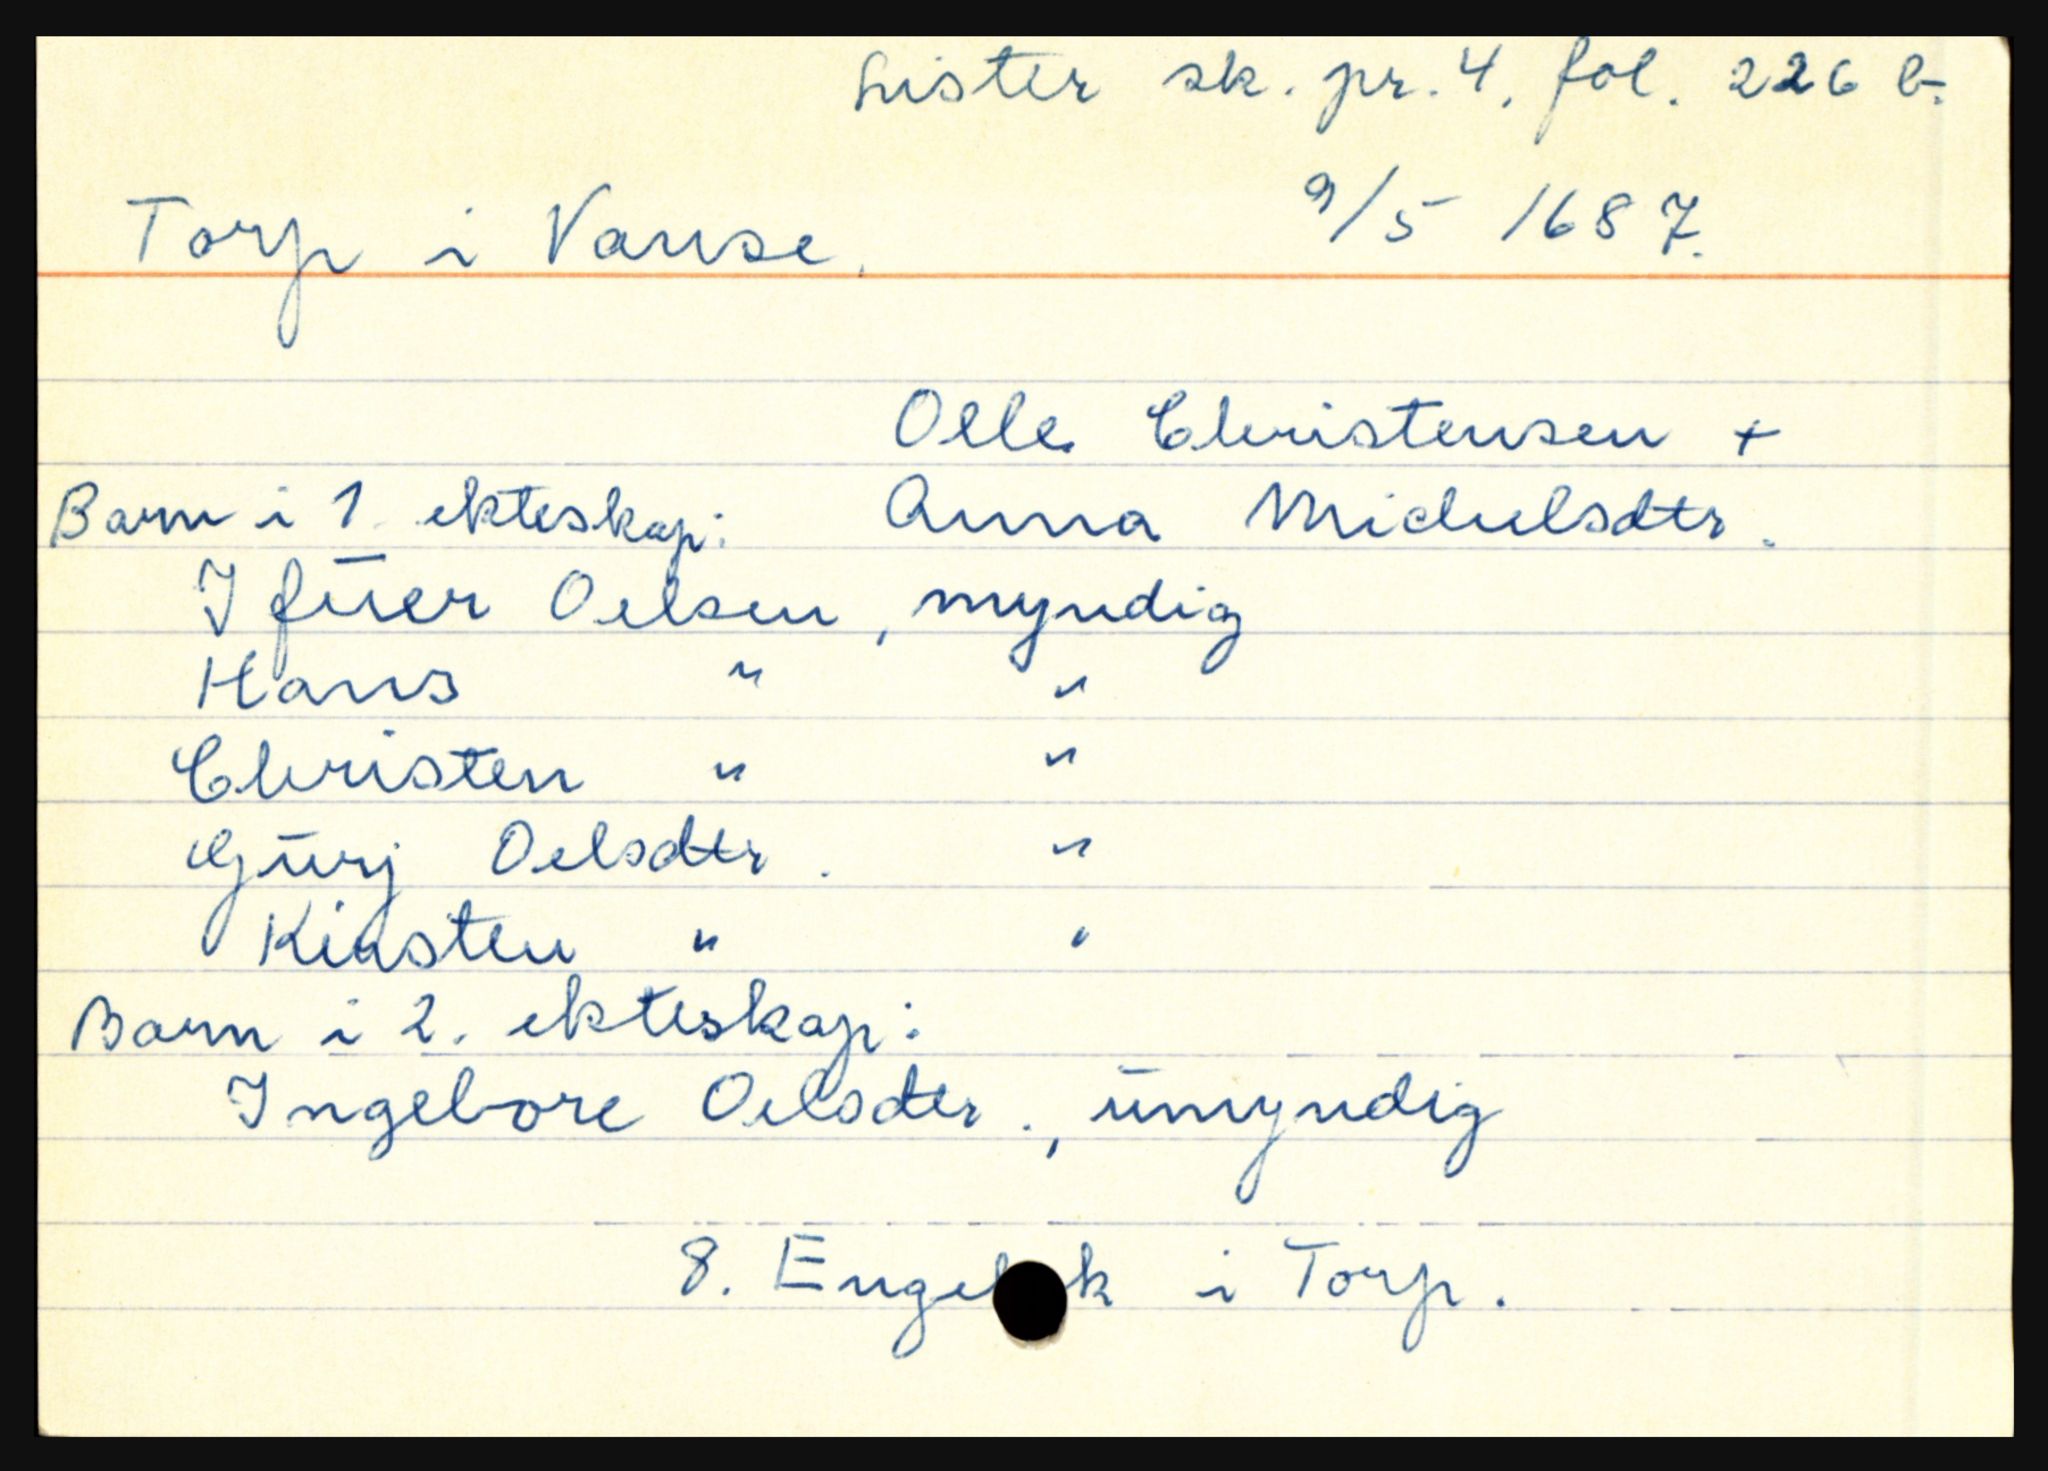 Lister sk. pr. 4, fol. 226 b.
Torp i Vanse. 9/5 1687.
Olle Christensen +
Barn i 1. ekteskap: Anna Michelsdtr.
Ifūer Oelsen, myndig
Hans " "
Christen " "
Gūrj Oelsdtr. "
Kirsten " "
Barn i 2. ekteskap:
Ingebore Oelsdtr., ūmyndig
8. i Torp.